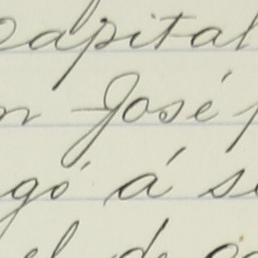 capital
n José
gó á se
el de